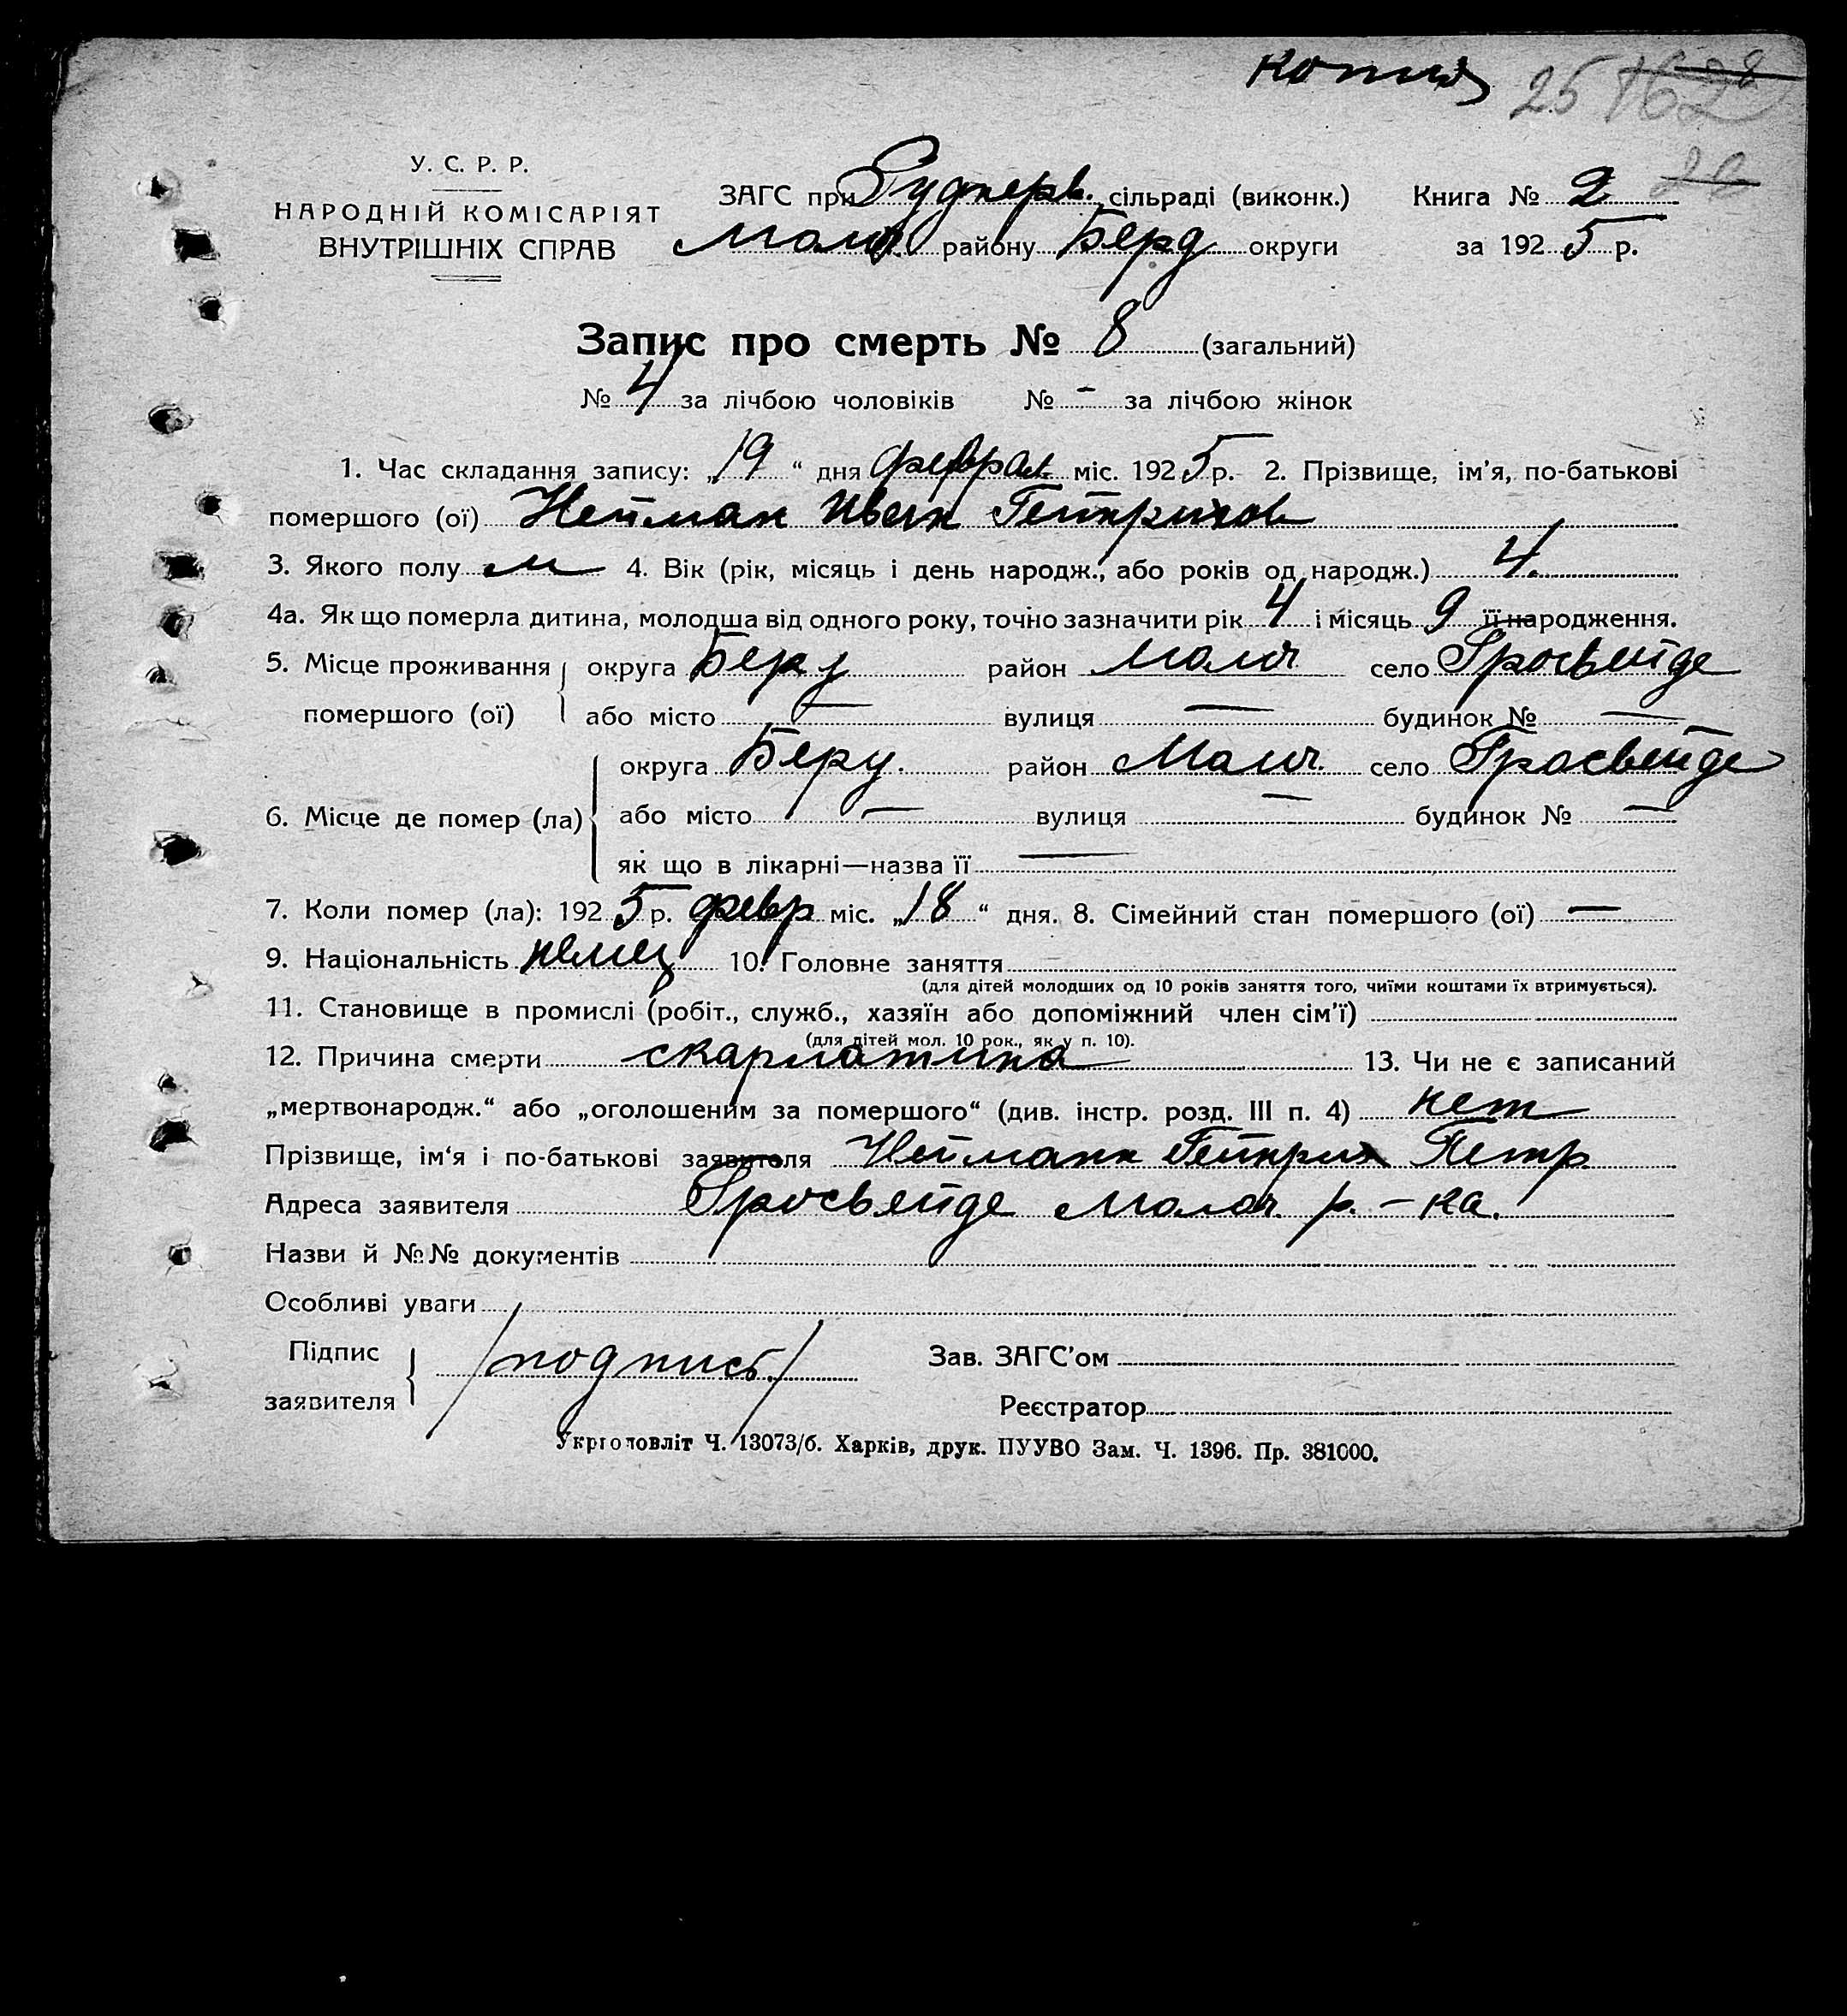 копия 25
У. С. Р. Р.
НАРОДНІЙ КОМІСАРІЯТ
ВНУТРІШНІХ СПРАВ
ЗАГС при Руднерв. сільраді (виконк.) Книга № 2
Молоч. району Берд округи за 1925 р.
Запис про смерть № 8 (загальний)
№ 4 за лічбою чоловіків № - за лічбою жінок
1. Час складання запису: „19“ дня феврал міс. 1925 р. 2. Прізвище, ім'я, по-батькові
помершого (ої) Нейман Иван Гейнрихов
3. Якого полу м 4. Вік (рік, місяць і день народж., або років од народж.) 4.
4а. Як що померла дитина, молодша від одного року, точно зазначити рік 4 і місяць 9 її народження.
5. Місце проживання округа Берд район Молоч село Гросвейде
помершого (ої) або місто — вулиця — будинок № —
округа Берд. район Молоч. село Гросвейде
6. Місце де помер (ла) або місто — вулиця — будинок № —
як що в лікарні—назва її —
7. Коли помер (ла): 1925 р. февр міс. „18“ дня. 8. Сімейний стан помершого (ої) —
9. Національність немец 10. Головне заняття
(для дітей молодших од 10 років заняття того, чиїми коштами їх втримується).
11. Становище в промислі (робіт., служб., хазяїн або допоміжний член сім'ї)
(для дітей мол. 10 рок., як у п. 10).
12. Причина смерти скарлатина 13. Чи не є записаний
„мертвонародж.“ або „оголошеним за помершого“ (див. інстр. розд. III п. 4) нет
Прізвище, ім'я і по-батькові заявителя Нейманн Гейнрих Петр
Адреса заявителя Гросвейде Молоч. р.-на.
Назви й №№ документів
Особливі уваги
Підпис
заявителя /подпись./
Зав. ЗАГС'ом
Реєстратор
Укрголовліт Ч. 13073/б. Харків, друк. ПУУВО Зам. Ч. 1396. Пр. 381000.